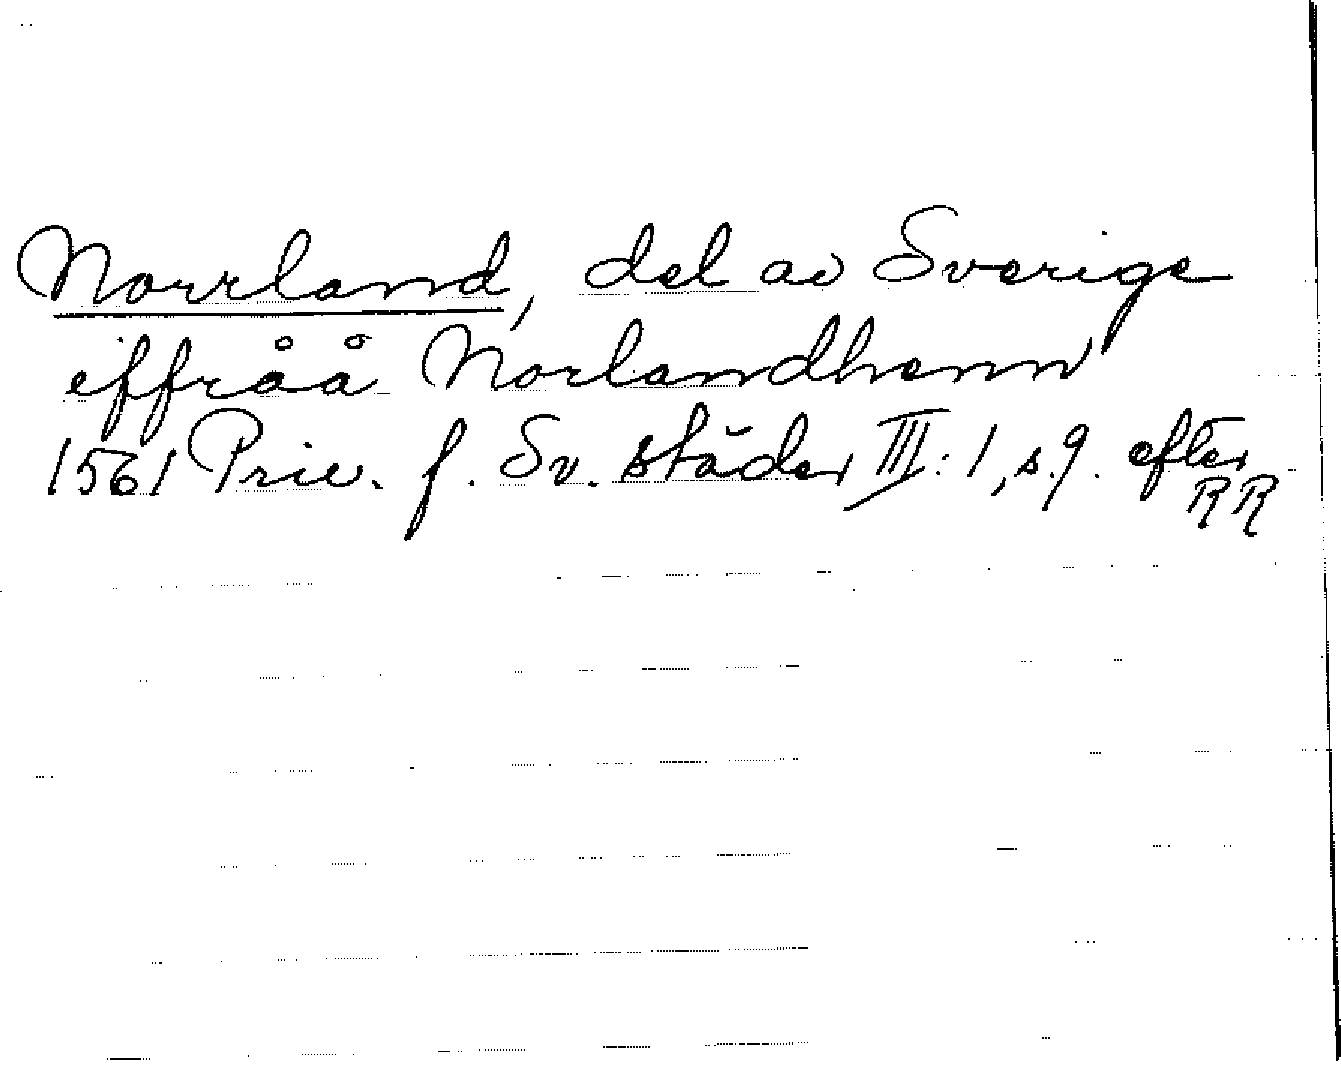 Norrland, del av Sverige
effråå Norlandhenn
1561 Priv. f. Sv. städer III:1, s.9. efter
RR